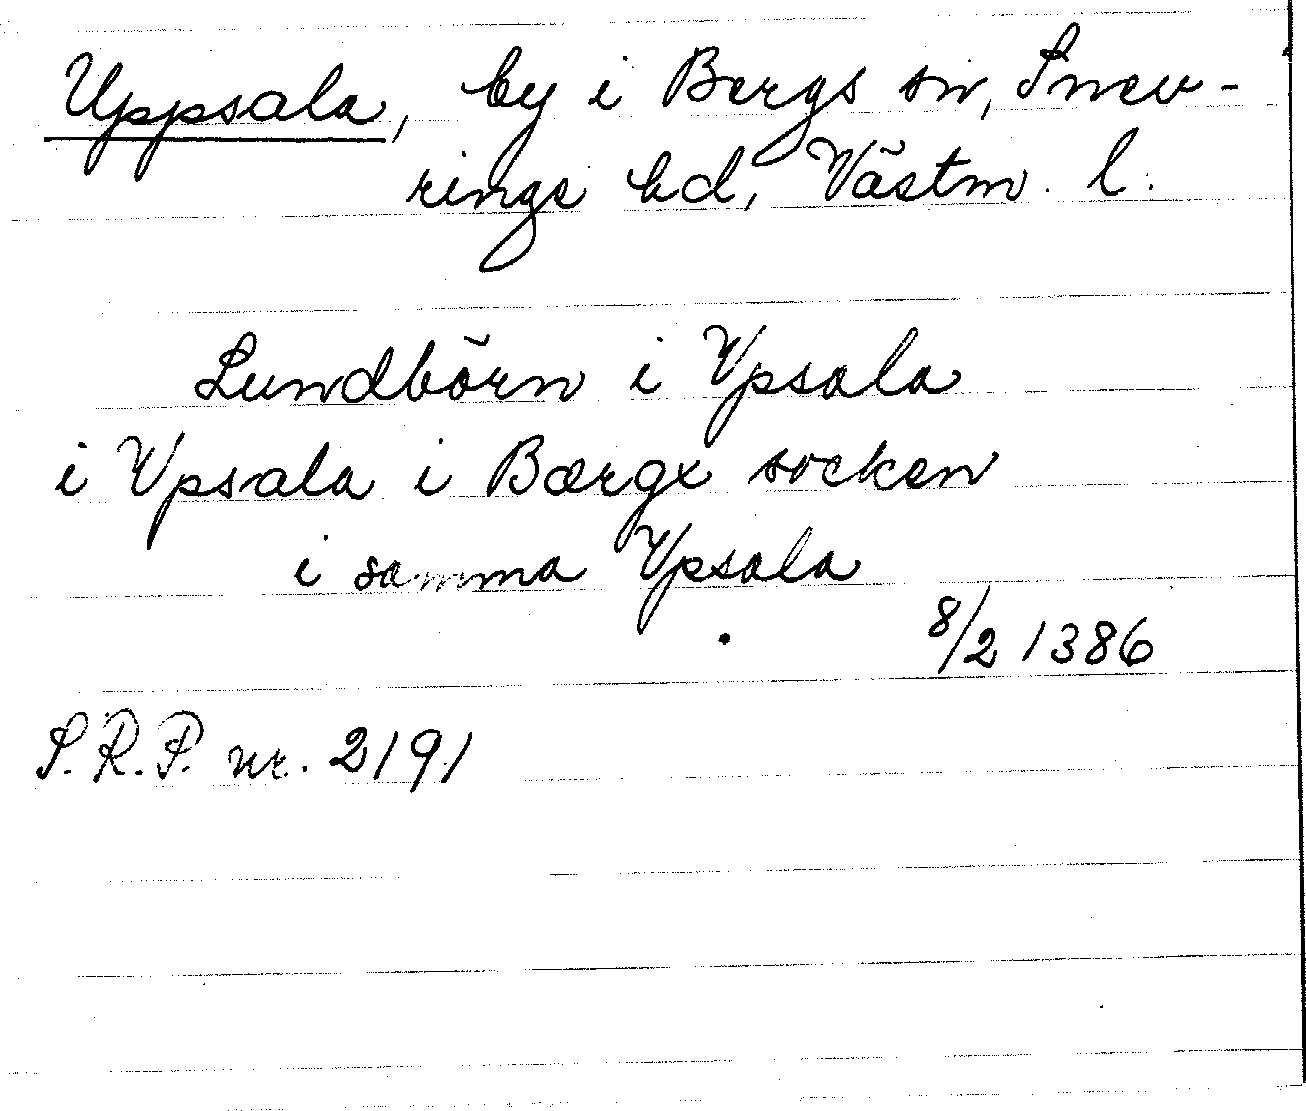 Uppsala, by i Bergs sn, Snev-
rings hd, Västm. l.
Lundbörn i Vpsala
i Vpsala i Bærgx socken
i samma Vpsala
8/2 1386
S.R.P. nr. 2191